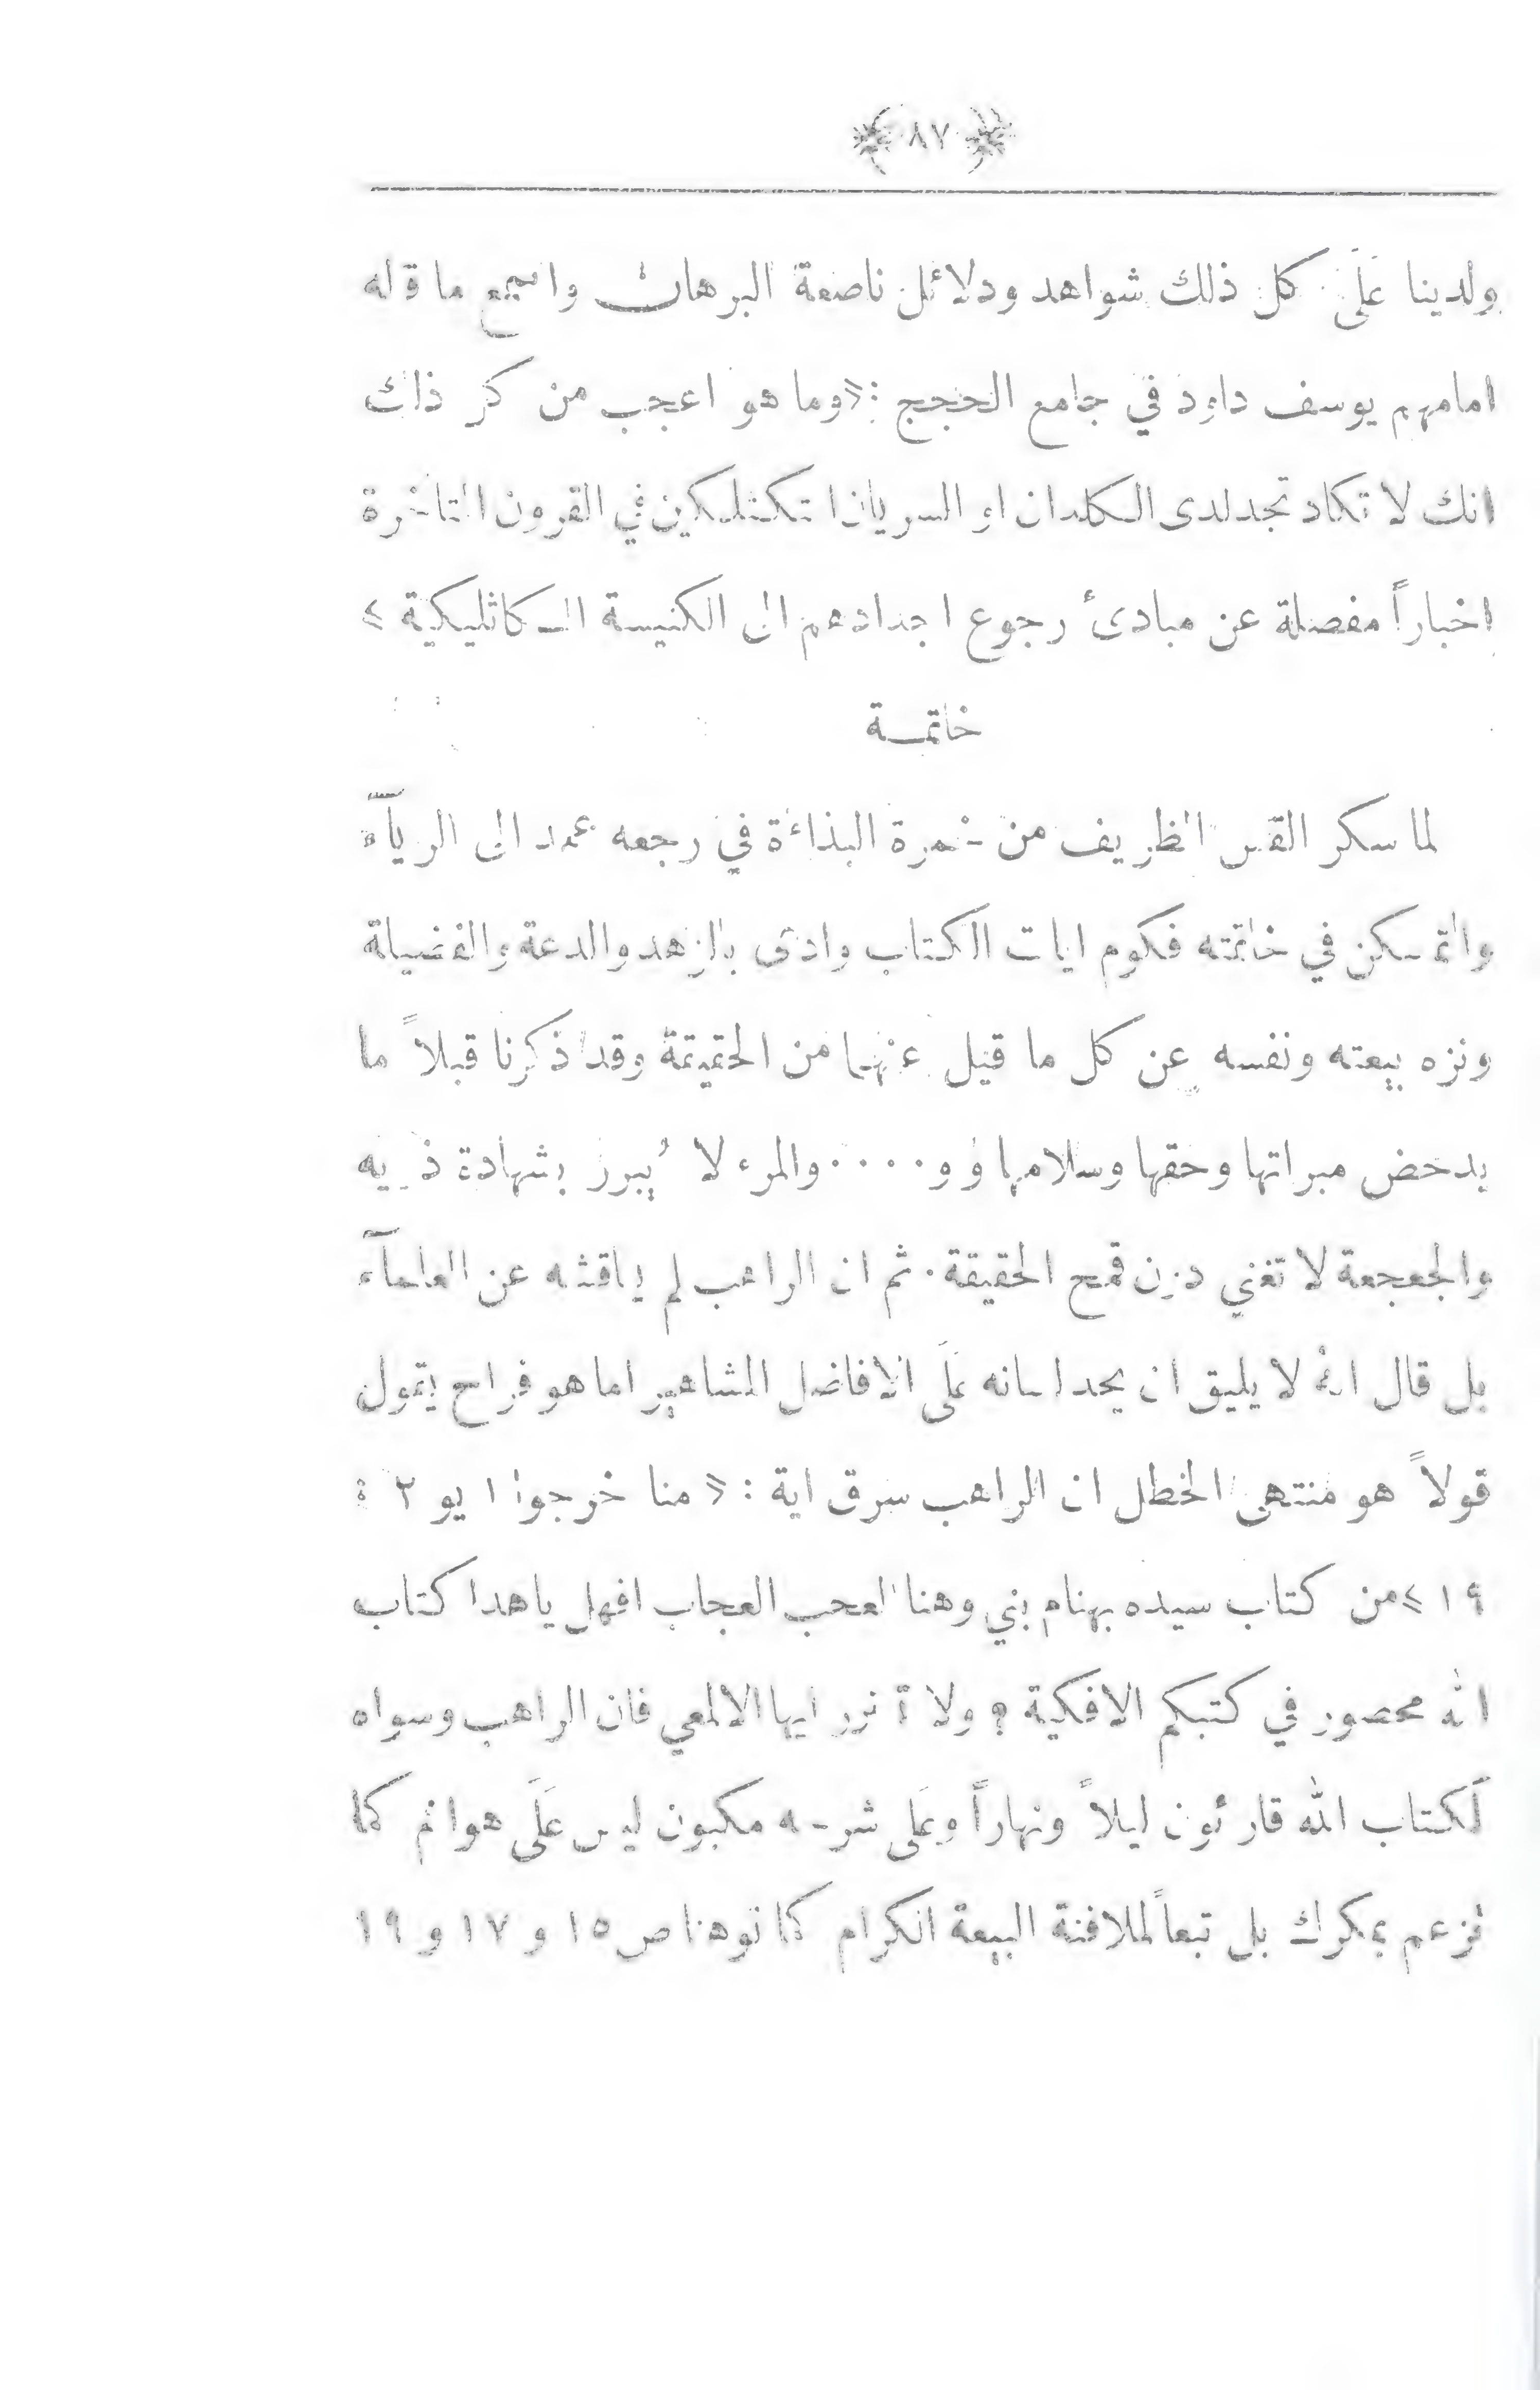 ﴿ ٨٧ ﴾
ولدينا عَلَى كل ذلك شواهد ودلائل ناصعة البرهان واسمع ما قاله
امامهم يوسف داود في جامع الحجج : «وما هو اعجب من كل ذلك
انك لا تكاد تجد لدى الكلدان او السريان المتكثلكين في القرون المتاخرة
اخباراً مفصلة عن مبادئ رجوع اجدادهم الى الكنيسة الكاثليكية »
خاتمـة
لما سكر القس الظريف من خمرة البذاءة في رجعه عمد الى الريآء
والتمسكن في خاتمته فكوم ايات الكتاب وادعى بالزهد والدعة والفضيلة
ونزه بيعته ونفسه عن كل ما قيل عنهما من الحقيقة وقد ذكرنا قبلاً ما
يدحض مبراتها وحقها وسلامها و و ٠٠٠٠ والمرء لا يُبرر بشهادة ذويه
والجعجعة لا تغني دون قمح الحقيقة ٠ ثم ان الراهب لم يناقشه عن العلمآء
بل قال انهُ لا يليق ان يحد لسانه عَلَى الافاضل المشاهير اما هو فراح يقول
قولاً هو منتهى الخطل ان الراهب سرق اية : « منا خرجوا ١ يو ٢ :
١٩ » من كتاب سيده بهنام بني وهنا العجب العجاب افهل يا هذا كتاب
الله محصور في كتبكم الافكية ؟ ولا ايها الالمعي فان الراهب وسواه
لكتاب الله قارئون ليلاً ونهاراً وعَلى شرحه مكبون ليس عَلَى هواهم كما
تزعم بمكرك بل تبعاً لملافنة البيعة الكرام كما نوهنا ص ١٥ و ١٧ و ١٩